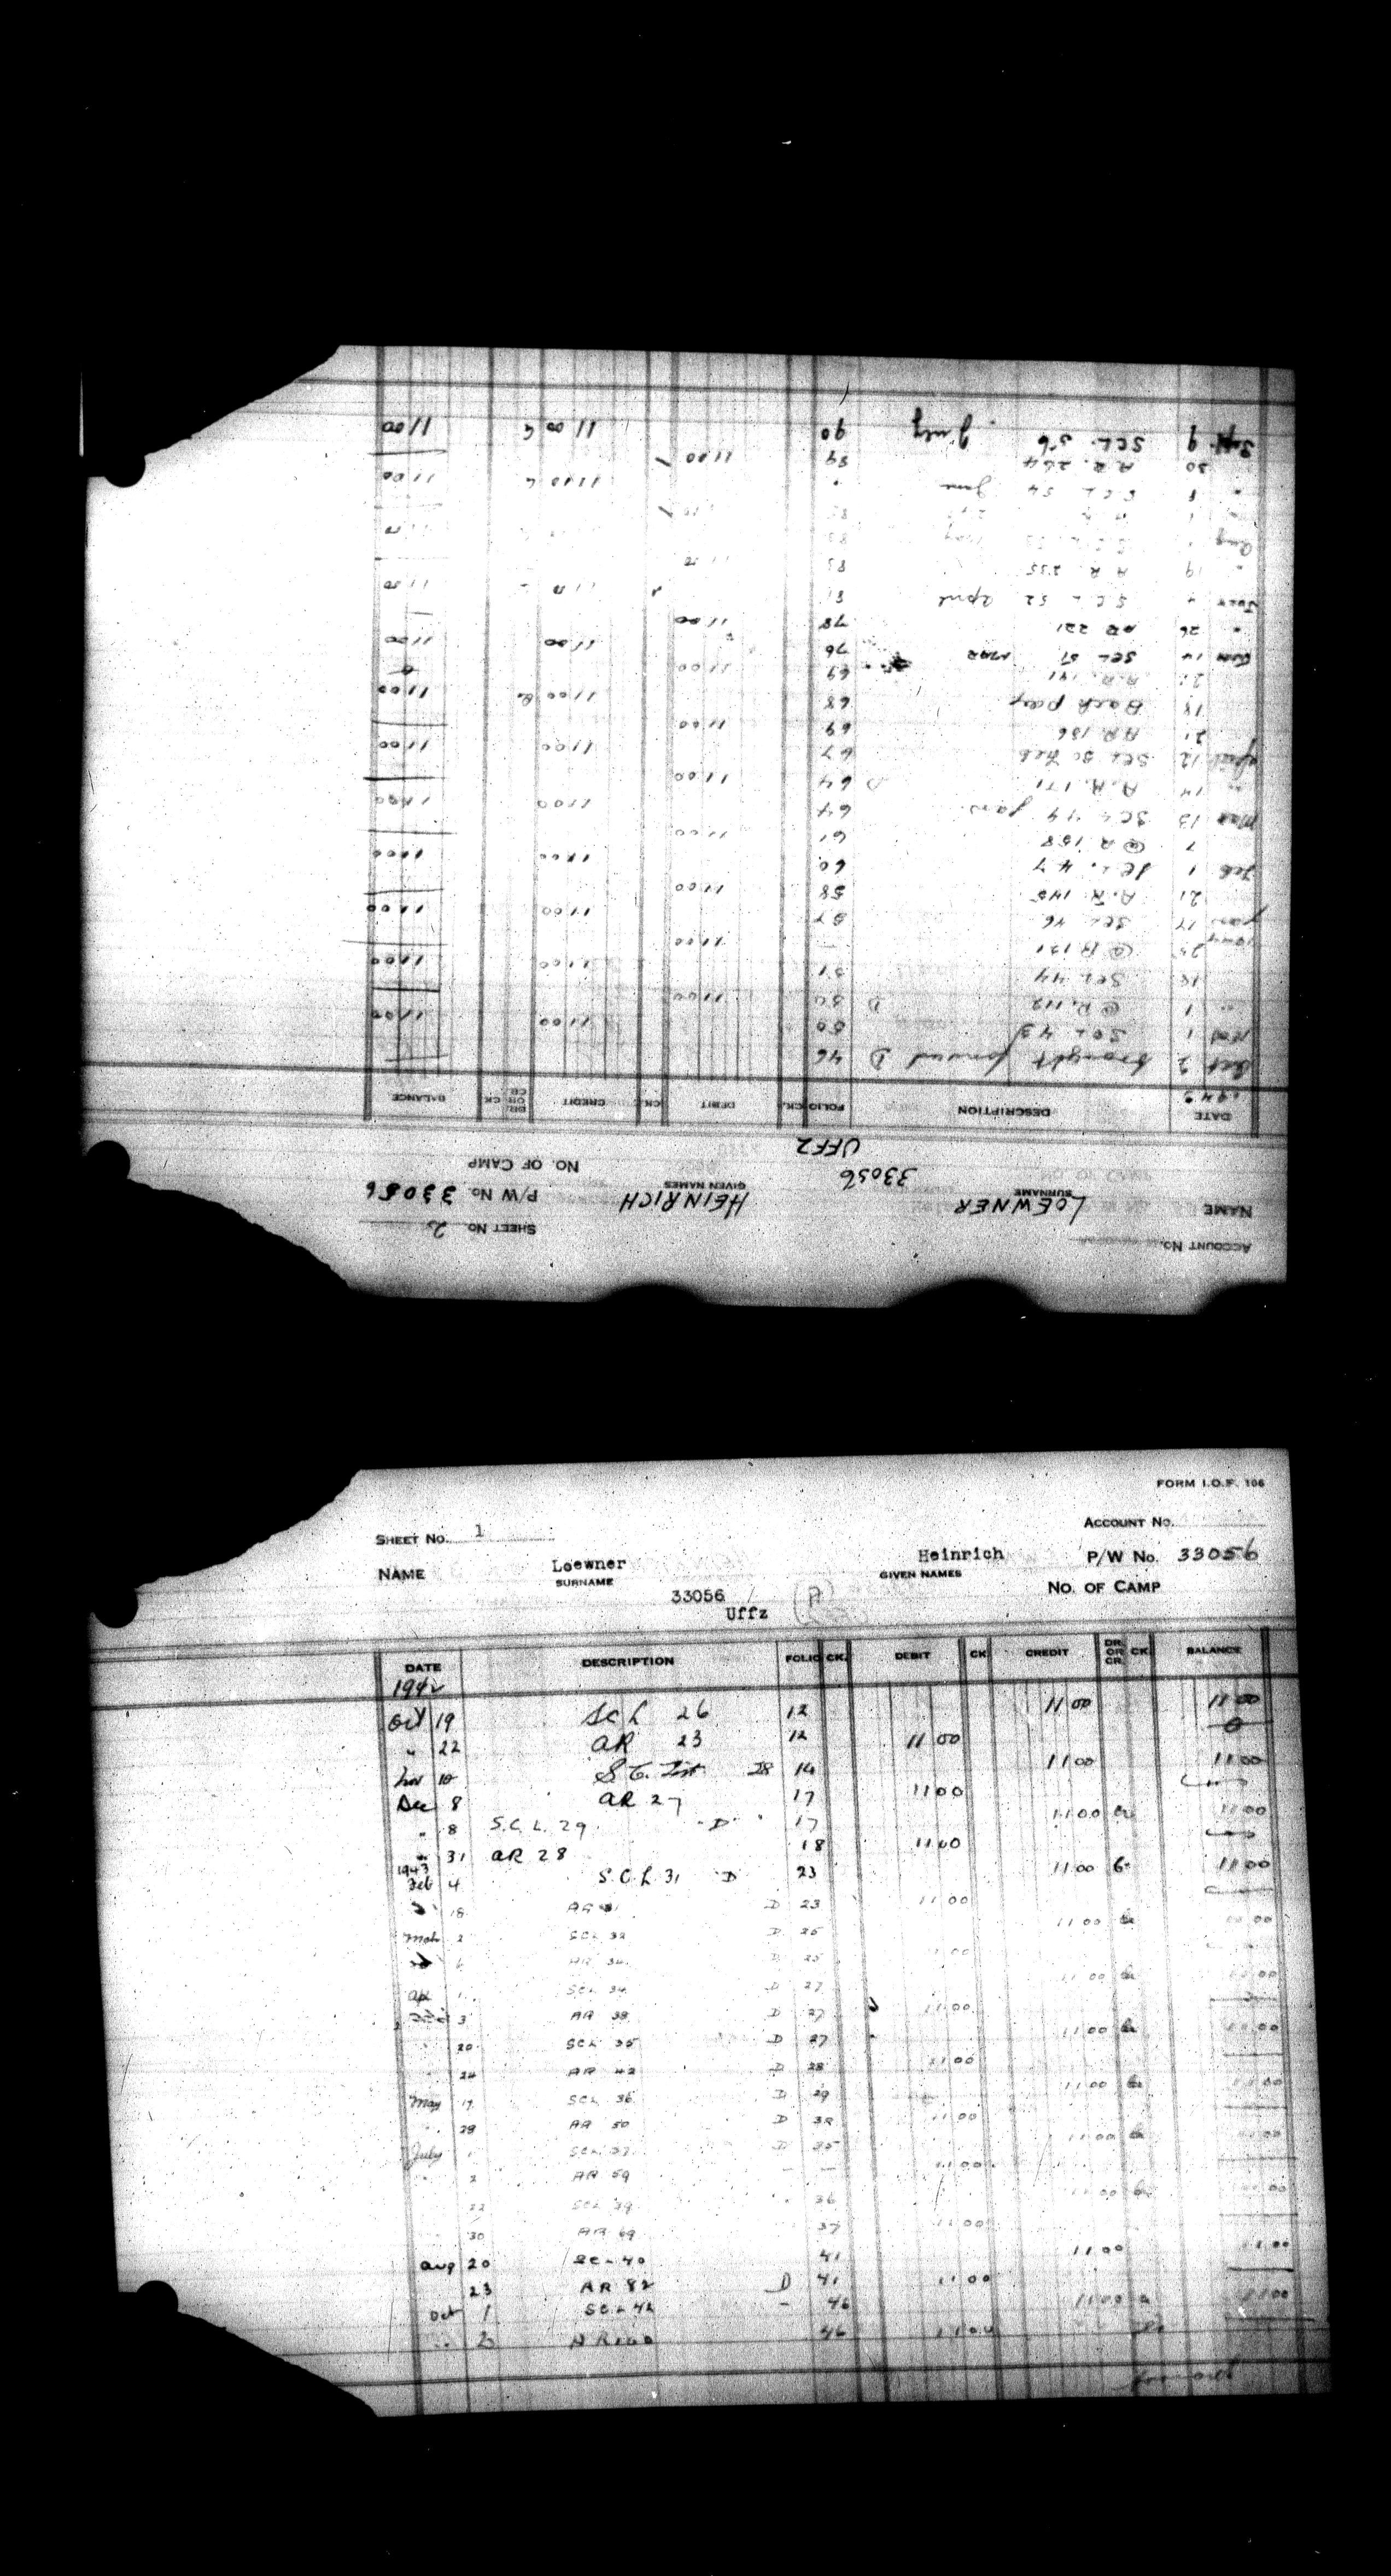 ACCOUNT No.
SHEET No. 2
NAME LOEWNER HEINRICH P/W No. 33056
SURNAME GIVEN NAMES
33056 NO. OF CAMP
UFFZ
DATE DESCRIPTION FOLIO CK. DEBIT CK. CREDIT DR. OR CR. CK. BALANCE
Oct 2 brought forward D 46
Nov 1 SCL 43 50 11 00 11 00
" 1 @R. 112 D 50 11 00
18 SCL 44 51 11 00 11 00
25 @R 121 11 00
1944
Jan 17 SCL 46 57 11 00 11 00
21 A.R. 145 58 11 00
Feb 1 SCL. 47 60 11 00 11 00
7 @R 158 61 11 00
Mar 13 SCL 49 Jan. 64 11 00 11 00
" 14 A.R. 171 D 64 11 00
April 12 SCL 50 Feb 67 11 00 11 00
21 AR 186 69 11 00
18 Back pay 68 11 00 11 00
21 A.R. 191 69 11 00
14 SCL 51 MAR 76 11 00 11 00
" 26 AR 221 78 11 00
4 SCL 52 April 81 11 00 11 00
" 19 A R. 235 83 11 00
Aug
" 8 SCL 54 June " 11 00 11 00
30 A.R. 264 89 11 00
Sept. 9 SCL. 56 July 90 11 00 11 00
FORM I.O.F. 106
SHEET No. 1 ACCOUNT No.
NAME Loewner Heinrich P/W No. 33056
SURNAME GIVEN NAMES
33056 NO. OF CAMP
Uffz (A)
DATE DESCRIPTION FOLIO CK. DEBIT CK CREDIT DR. OR CR. CK. BALANCE
1942
Oct 19 SCL 26 12 11 00 11 00
" 22 AR 23 12 11 00 0
Nov 10 S.C. List 28 14 11 00 11 00
Dec 8 AR 27 17 11 00
" 8 S.C.L. 29 D " 17 11 00 Cr 11 00
" 31 AR 28 18 11 00
1943
Feb 4 S.C.L. 31 D 23 11 00 Cr 11 00
18 AR 31 D 23 11 00
Mch 2 SCL 32 D 25 11 00 Cr 11 00
6 AR 34 D 25 11 00
Apr 1 SCL 34 D 27 11 00 Cr 11 00
3 AR 38 D 27 11 00
20 SCL 35 D 27 11 00 Cr 11 00
24 AR 42 D 28 11 00
May 17 SCL 36 D 29 11 00 Cr 11 00
29 AR 50 D 32 11 00
July 1 SCL 37 D 35 11 00 Cr 11 00
2 AR 59 – – 11 00
22 SCL 39 36 11 00 11 00
30 AR 69 37 11 00
Aug 20 SCL 40 41 11 00 11 00
23 AR 82 D 41 11 00
Oct 1 SCL 42 – 46 11 00 11 00
2 AR 100 46 11 00
forward